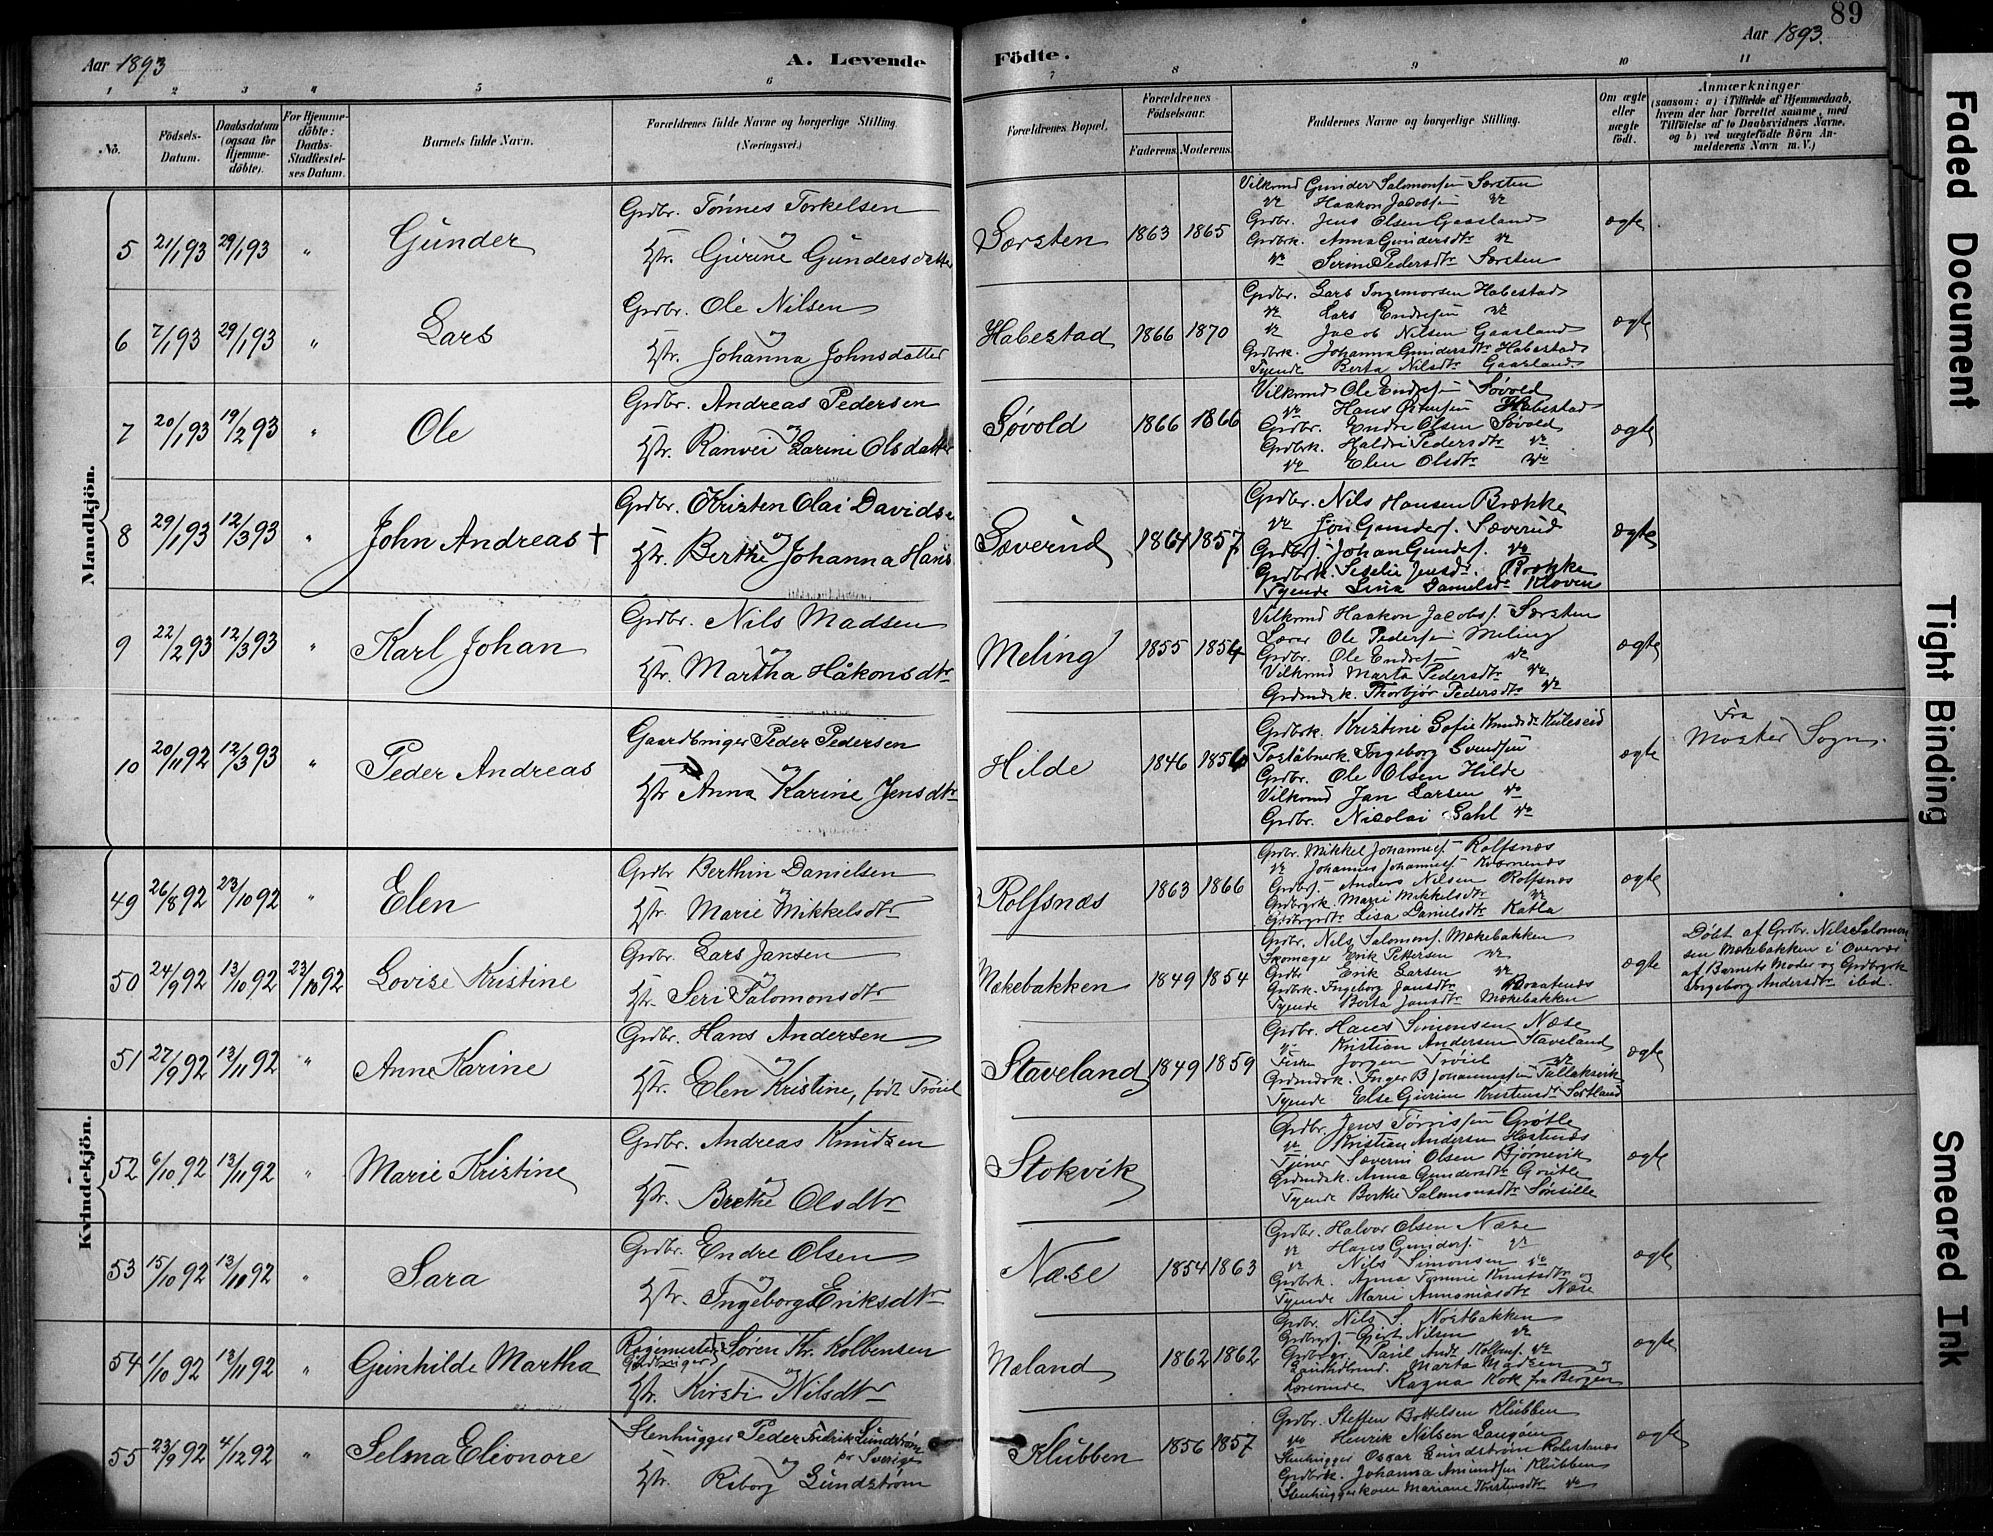 89
Aar 1893
A. Levende
Födte.
Aar 1893.
1 2 3 4 5 6 7 8 9 10 11
No.
Födsels-
Datum.
Daabsdatum
(ogsaa for
Hjemme-
döbte).
For Hjemme-
döbte:
Daabs-
Stadfæstel-
ses Datum.
Barnets fulde Navn.
Forældrenes fulde Navne og borgerlige Stilling.
(Næringsvei.)
Forældrenes Bopæl.
Forældrenes
Födselsaar.
Faderens. Moderens.
Faddernes Navne og borgerlige Stilling.
Om ægte
eller
uægte
födt.
Anmærkninger
(saasom: a) i Tilfælde af Hjemmedaab,
hvem der har forrettet samme, med
Tilföielse af to Daabsvidners Navne,
og b) ved uægtefödte Börn An-
melderens Navn m. V.)
Mandkjön.
5 21/1 93 29/1 93 " Gunder
Grdbr. Tönnes Torkelsen
og
Hstr. Gurine Gundersdatter
Særsten 1863 1865
Vilkrmd Gunder Salomonsen Særsten
" Haakon Jacobsen "
Grdbr. Jens Olsen Gaasland
Grdbrk. Anna Gundersdtr "
" Serine Pedersdtr Særsten
ægte
6 7/1 93 29/1 93 " Lars
Grdbr. Ole Nilsen
og
Hstr. Johanna Johnsdatter
Habestad 1866 1870
Grdbr. Lars Ingemorsen Habestad
" Lars Endresen "
" Jacob Nilsen Gaasland
Grdbrk. Johanna Gundersdtr Habestad
Tyende Berta Nilsdtr Gaasland
ægte
7 20/1 93 19/2 93 " Ole
Grdbr. Andreas Pedersen
og
Hstr. Ranvei Larine Olsdatter
Sövold 1866 1866
Vilkrmd Ole Endresen Sövold
" Hans Östensen Habestad
Grdbr. Endre Olsen Sövold
Grdbrk. Haldri Pedersdtr "
" Elen Olsdtr "
ægte
8 29/1 93 12/3 93 " John Andreas †
Grdbr. Kristen Olai Davids
og
Hstr. Berthe Johanna Hans
Sæverud 1864 1857
Grdbr. Nils Hansen Brække
" Jon Gunders. Sæverud
Grdbrs. Johan Gunders. "
Grdbrk. Seselie Jensdr. Brække
Tyende Lina Danielsdr Kloven
ægte
9 22/2 93 12/3 93 " Karl Johan
Grdbr. Nils Madsen
og
Hstr. Martha Håkonsdtr
Meling 1855 1854
Vilkrmd Haakon Jacobs. Særsten
Lærer Ole Pedersen Meling
Grdbr. Ole Endresen "
Vilkrmd Marta Pedersdtr "
Grdmdsk. Thorbjör Pedersdtr "
ægte
10 20/11 92 12/3 93 " Peder Andreas
Gaardbruger Peder Pedersen
og
Hstr Anna Karine Jensdtr
Hilde 1846 1854
Grdbrk. Kristine Sofie Knudsdr Kuleseid
Postabnerk. Ingeborg Svendsen
Grdbr. Ole Olsen Hilde
Vilkrmd Jan Larsen "
Grdbr. Nicolai Sahl "
ægte
Fra
Moster Sogn.
Kvindekjön.
49 26/8 92 23/10 92 " Elen
Grdbr Berthin Danielsen
og
Hstr. Marie Mikkelsdtr
Rolfsnæs 1863 1866
Grdbr. Mikkel Johannes. Rolfsnæs
" Johannes Johannes. Kvernenæs
Grdbrs. Anders Nilsen Rolfsnæs
Grdbrgrk. Marie Mikkelsdtr "
Grdbrgrdtr Lisa Danielsdtr Katla
ægte
50 24/9 92 13/10 92 23/10 92 Lovise Kristine
Grdbr. Lars Jansen
og
Hstr. Seri Salomonsdtr
Mækebakken 1849 1854
Grdbr. Nils Salomons. Mækebakken
Skomager Erik Pettersen "
Grdbr Erik Larsen "
Grdbrk. Ingeborg Jansdtr
Tyende Berta Jansdtr Mækebakken
ægte
Döbt af Grdbr. Nils Salomon
sen Mækebakken i Overvær
af Barnets Moder og Grdbrgrk
Ingeborg Andersdtr ibd.
51 27/9 92 13/11 92 " Anne Karine
Grdbr. Hans Andersen
og
Hstr. Elen Kristine, födt Tröiel
Staveland 1849 1859
Grdbr. Hans Simonsen Næse
" Kristian Andersen Staveland
Jorgen Tröiel "
Grdmdsk. Inger B Johannessen Tallaksvik
Tyende Else Gurine Kristensdr Sortland
ægte
52 6/10 92 13/11 92 " Marie Kristine
Grdbr. Andreas Knudsen
og
Hstr. Brethe Olsdtr
Stokvik 1849 1859
Grdbr. Jens Törrissen Grötle
" Kristian Andersen Hestenæs
Tjener Sæverin Olsen Bjornevik
Grdmdsk. Anna Gundersdtr Grötle
Tyende Berthe Salomonsdtr Sönstille
ægte
53 15/10 92 13/11 92 " Sara
Grdbr. Endre Olsen
og
Hstr. Ingeborg Eriksdtr
Næse 1854 1863
Grdbr. Halvor Olsen Næse
" Hans Gunders. "
" Nils Simonsen "
Grdbrk. Anna Tomine Knutsdtr og
Tyende Marie Annaniasdtr Næse
ægte
54 1/10 92 13/11 92 " Gunhilde Martha
Røgimester Sören Kr. Kolbensen
Gårdbruger
og
Hstr. Kirsti Nilsdtr
Mæland 1862 1862
Grdbr. Nils S. Nostbakken
Grdbrgs. Gjert Nilsen "
Grdbrgr. Paul Andr. Kolbens. "
Marta Madsen og
Lærerinde Ragna Kok fra Bergen
ægte
55 23/9 92 4/12 92 " Selma Elionore
Stenhugger Peder Fredrik Lundström
fra Sverige
og
Hstr. Riborg Lundström
Klubben 1856 1857
Grdbr. Steffen Bottelsen Klubben
" Henrik Nilsen Langöen
Stenhugger Oscar Lundström Robertsnæs
Grdbrk. Johanna Amundsen Klubben
Stenhuggerkone Mariane Kristensdtr "
ægte
Faded Document
Tight Binding
Smeared Ink